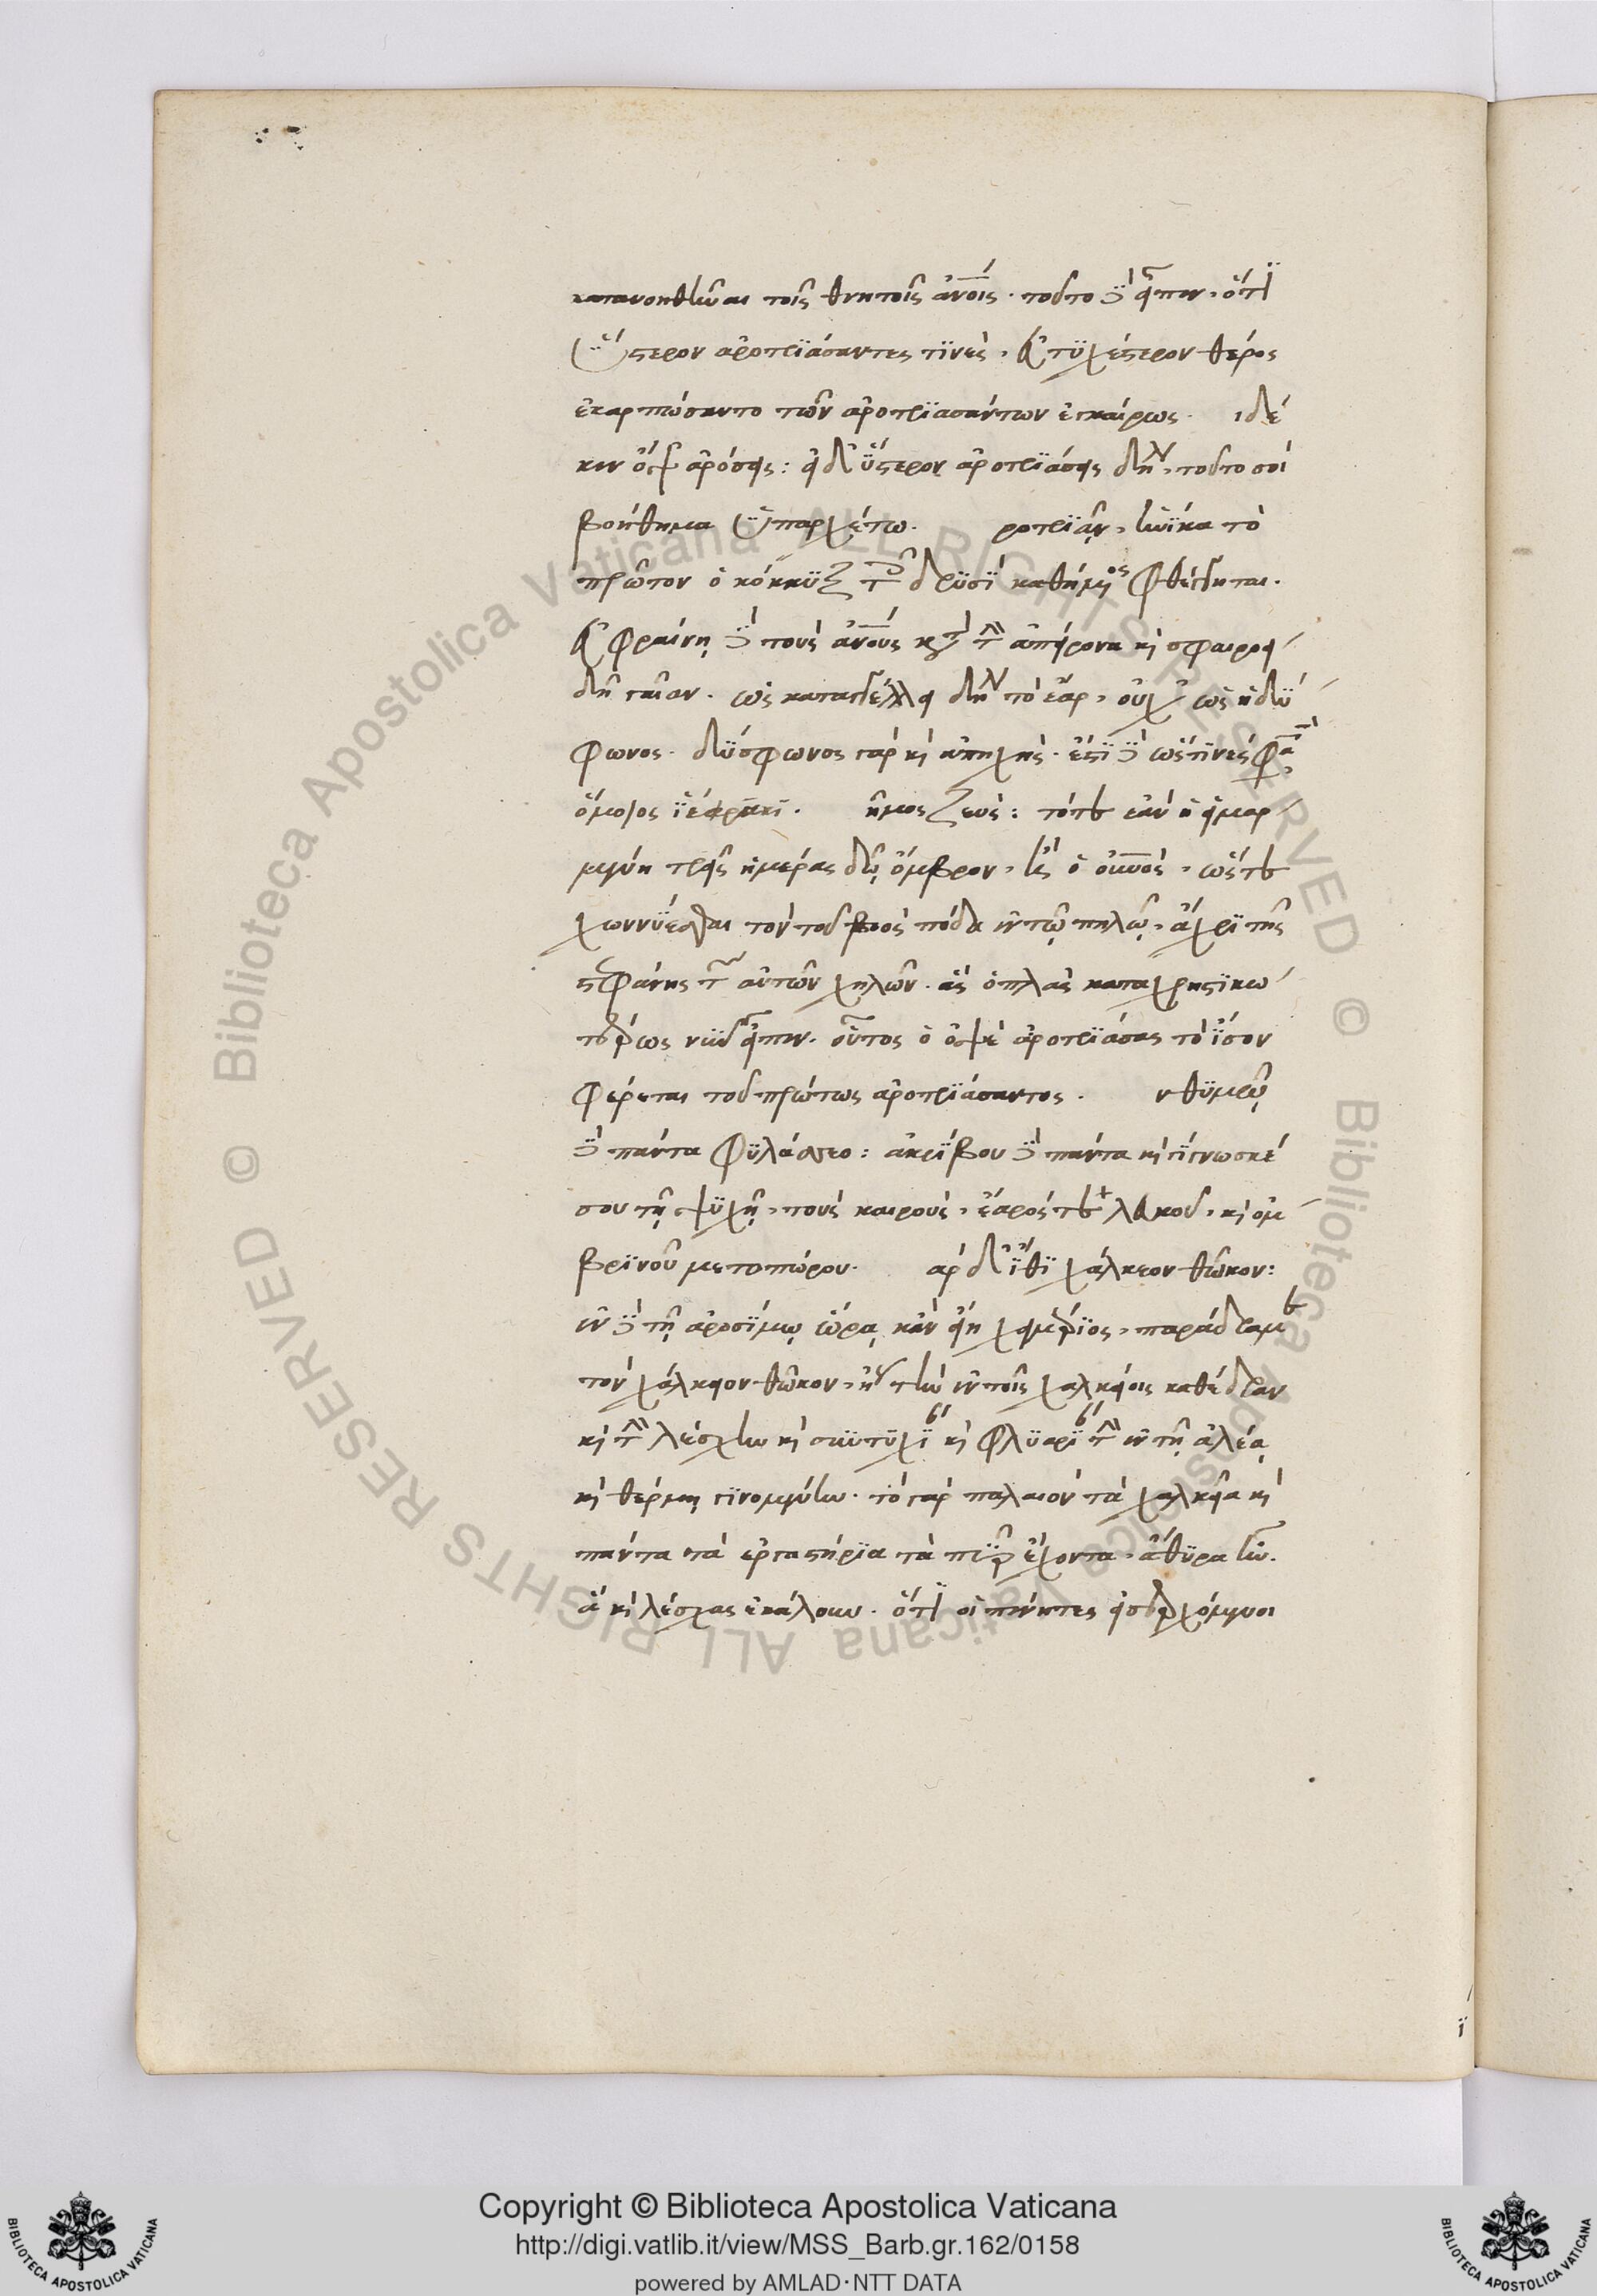 κατανοηθῆναι τοῖς θνητοῖς ἀνοις. τοῦτο δὲ εἶπεν, ὅτι
ὕστερον ἀροτριάσαντες τινὲς, εὐτυχέστερον θέρος
ἐκαρπώσαντο τῶν ἀροτριασάντων ἐγκαίρως. ι δέ
κεν ὄψ ἀρόσης: εἰ δ' ὕστερον ἀροτριάσεις δην, τοῦτο σοὶ
βοήθημα ὑπαρχέτω. ροτριᾶν, ἡνίκα τὸ
πρῶτον ὁ κόκκυξ τ δρυσὶ καθήμενος φθέγγηται.
εὐφραίνη δὲ τοὺς ἀνους κατὰ τὴν ἀπείρονα καὶ σφαιροει
δῆ γαῖαν. ὡς καταγγέλλει δην τὸ ἔαρ, οὐχ ὡς ἡδύ
φωνος. δύσφωνος γὰρ καὶ ἀπηχὴς. ἔστι δὲ ὥς τινές φα
ὅμοιος ἱέρακι. ἦμος ζεὺς: τότε ἐὰν ἡ εἱμαρ
μένη τρεῖς ἡμέρας δῷ ὄμβρον, ἢ ὁ οὐνος, ὥστε
χωννύεσθαι τὸν τοῦ βοὸς πόδα ἐν τῷ πηλῷ, ἄχρι τῆς
στεφάνης τῶν αὐτῶν χηλῶν. ἃς ὁπλὰς καταχρηστικω
τέρως νῦν εἶπεν. οὗτος ὁ ὀψὲ ἀροτριάσας τὸ ἴσον
φέρεται τοῦ πρώτως ἀροτριάσαντος. ν θυμῷ
δὲ πάντα φυλάσσεο: ἀκρίβου δὲ πάντα καὶ γίγνωσκέ
σου τῇ ψυχῇ, τοὺς καιροὺς, ἔαρός τε λευκοῦ, καὶ ὀμ
βρινοῦ μετοπώρου. αρ δ' ἴθι χάλκεον θῶκον:
ἐν δὲ τῇ ἀροσίμῳ ὥρᾳ κἂν εἴη χειμέριος, παράδραμε
τὸν χάλκειον θῶκον, ἤγουν τὴν ἐν τοῖς χαλκείοις καθέδραν
καὶ τὴν λέσχην καὶ συντυχίαν καὶ φλυαρίαν τὴν ἐν τῇ ἀλέᾳ
καὶ θέρμῃ γινομένην. τὸ γὰρ παλαιὸν τὰ χαλκεῖα καὶ
πάντα τὰ ἐργαστήρια τὰ πῦρ ἔχοντα, ἄθυρα ἦν.
ἃ καὶ λέσχας ἐκάλουν. ὅτι οἱ πένητες εἰσερχόμενοι
Copyright © Biblioteca Apostolica Vaticana
http://digi.vatlib.it/view/MSS_Barb.gr.162/0158
powered by AMLAD·NTT DATA